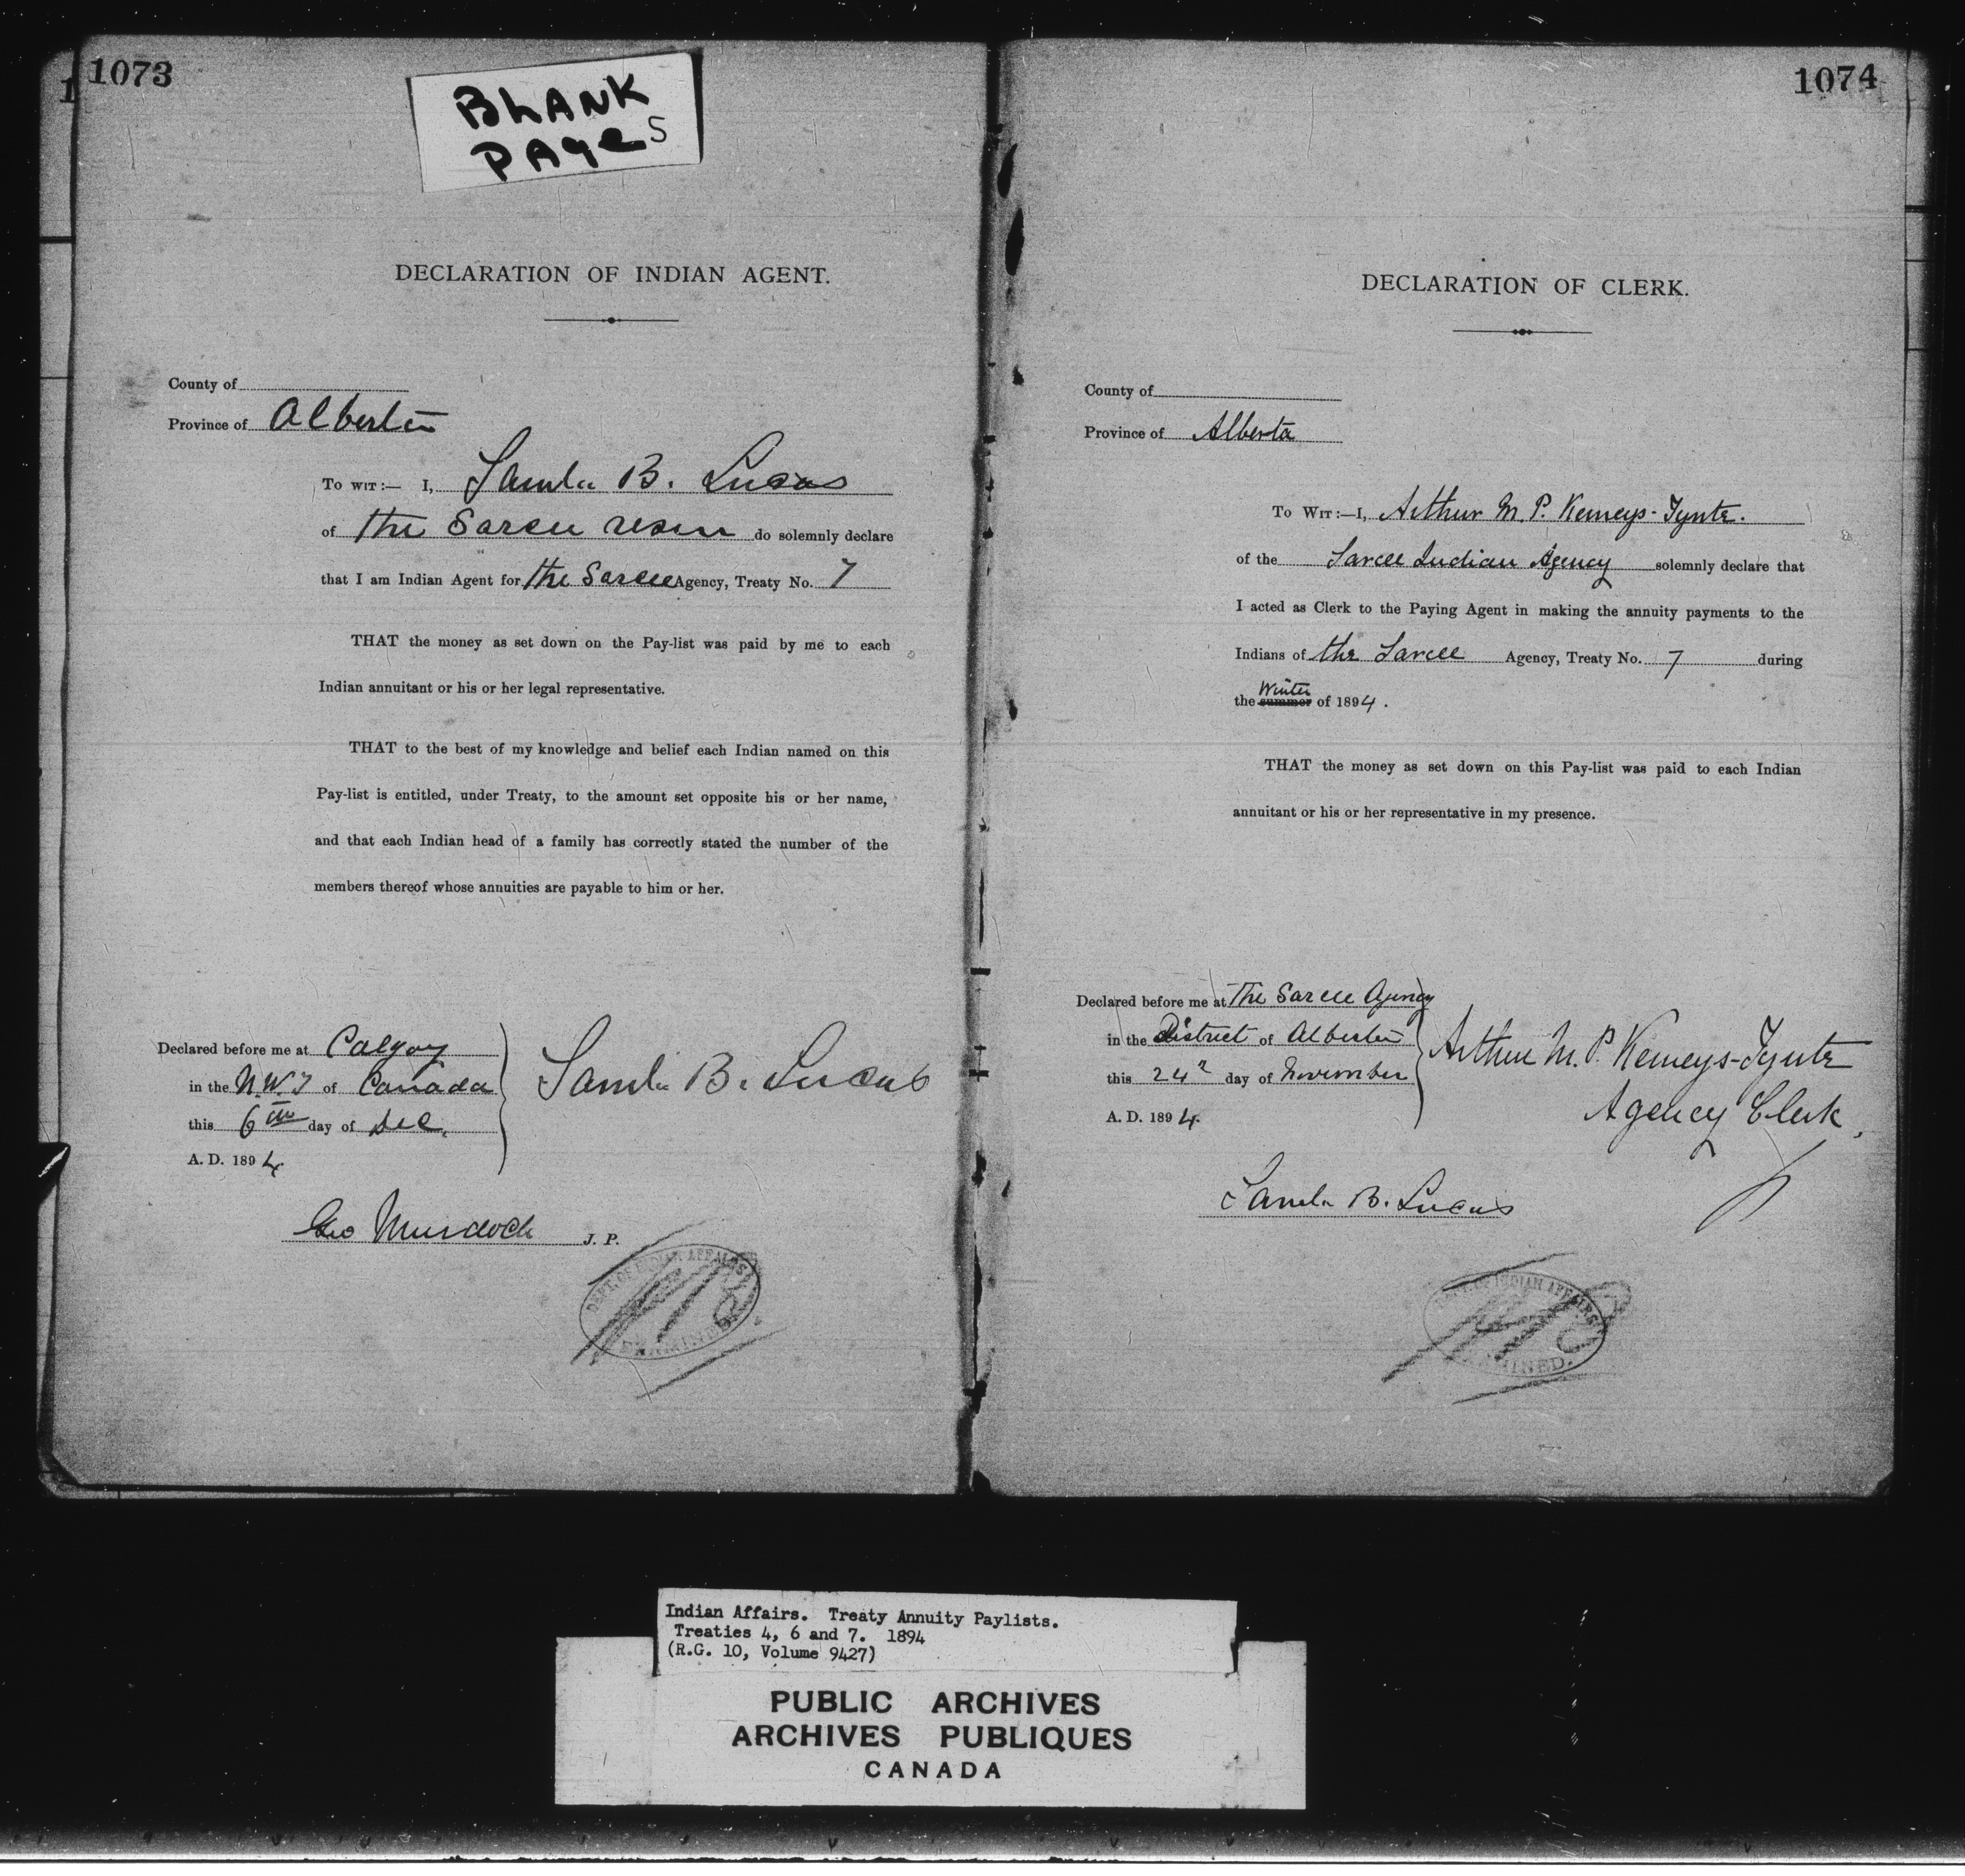 1073
BLANK
PAgeS
DECLARATION OF INDIAN AGENT.
County of
Province of Alberta
To wit:— I, Samlu B. Lucas
of the Sarcee reserve do solemnly declare
that I am Indian Agent for the Sarcee Agency, Treaty No. 7
THAT the money as set down on the Pay-list was paid by me to each
Indian annuitant or his or her legal representative.
THAT to the best of my knowledge and belief each Indian named on this
Pay-list is entitled, under Treaty, to the amount set opposite his or her name,
and that each Indian head of a family has correctly stated the number of the
members thereof whose annuities are payable to him or her.
Declared before me at Calgary
in the N.W.T of Canada
this 6th day of Dec.
A. D. 1894
B. Lucas
Geo Murdoch J. P.
DEPT. OF INDIAN AFFAIRS
EXAMINED.
1074
DECLARATION OF CLERK.
County of
Province of Alberta
To Wit:—I, Arthur M. P. Kemeys-Tynte.
of the Sarcee Indian Agency solemnly declare that
I acted as Clerk to the Paying Agent in making the annuity payments to the
Indians of the Sarcee Agency, Treaty No. 7 during
Winter
the summer of 1894.
THAT the money as set down on this Pay-list was paid to each Indian
annuitant or his or her representative in my presence.
Declared before me at The Sarcee Agency
in the District of Alberta
this 24 day of November
A. D. 1894.
Arthur M. P. Kemeys-Tynte
Agency Clerk.
B. Lucas
DEPT. OF INDIAN AFFAIRS
EXAMINED.
Indian Affairs. Treaty Annuity Paylists.
Treaties 4, 6 and 7. 1894
(R.G. 10, Volume 9427)
PUBLIC ARCHIVES
ARCHIVES PUBLIQUES
CANADA